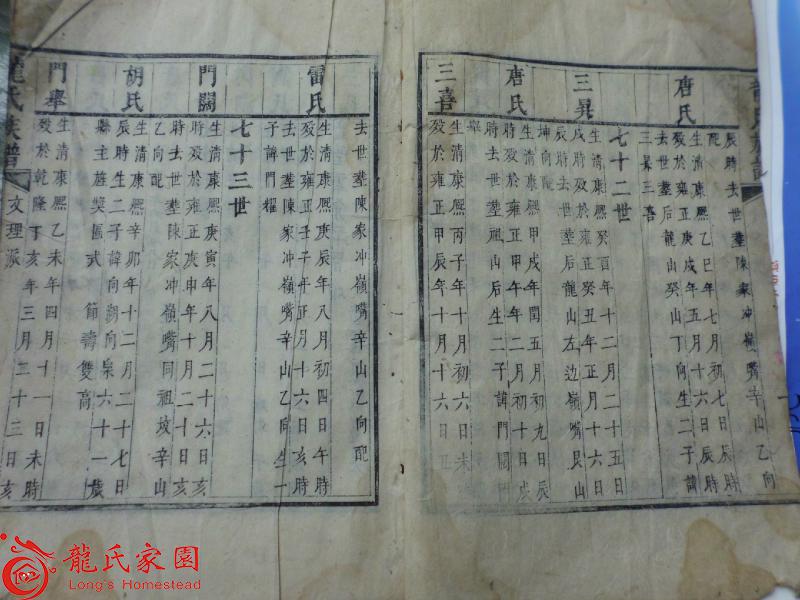 辰時去世塟陳家冲嶺嘴辛山乙向
配
唐氏
生清康熙乙巳年七月初七日辰時
歿於雍正庚戌年五月十六日辰時
去世塟后龍山癸山丁向生二子諱
三昇三喜
七十二世
三昇
生清康熙癸酉年十二月二十五日
戌時歿於雍正癸丑年正月十六日
辰時去世塟后龍山左边嶺嘴艮山
坤向配
唐氏
生清康熙甲戌年閏五月初九日辰
時歿於雍正甲午年二月初十日戌
時去世塟后龍山后生二子諱門闊門
舉
三喜
生清康熙丙子年十月初六日未
歿於雍正甲辰年十月十六日丑
去世塟陳家冲嶺嘴辛山乙向配
雷氏
生清康熙庚辰年八月初四日午時
歿於雍正壬子年正月十六日亥時
去世塟陳家冲嶺嘴辛山乙向生一
子諱門耀
七十三世
門闊
生清康熙庚寅年八月二十六日亥
時歿於雍正庚申年十月二十日亥
時去世塟陳家冲嶺嘴同祖坟辛山
乙向配
胡氏
生清康熙辛卯年十二月二十七日
辰時生二子諱向朝向杲六十一歲
縣主旌獎匾式 節壽雙高
門舉
生清康熙乙未年四月十一日未時
歿於乾隆丁亥年三月二十三日亥
龍氏族譜
文理派
龍氏家園
Long's Homestead